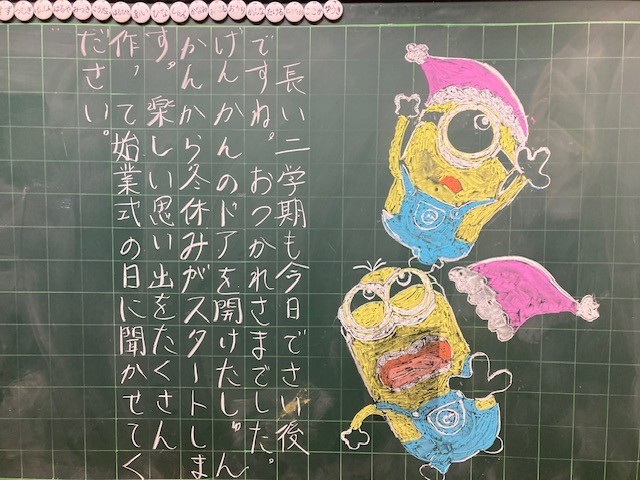 長い二学期も今日でさい後
ですね。おつかれさまでした。
げんかんのドアを開けたしゅん
かんから冬休みがスタートしま
す。楽しい思い出をたくさん
作って始業式の日に聞かせてく
ださい。